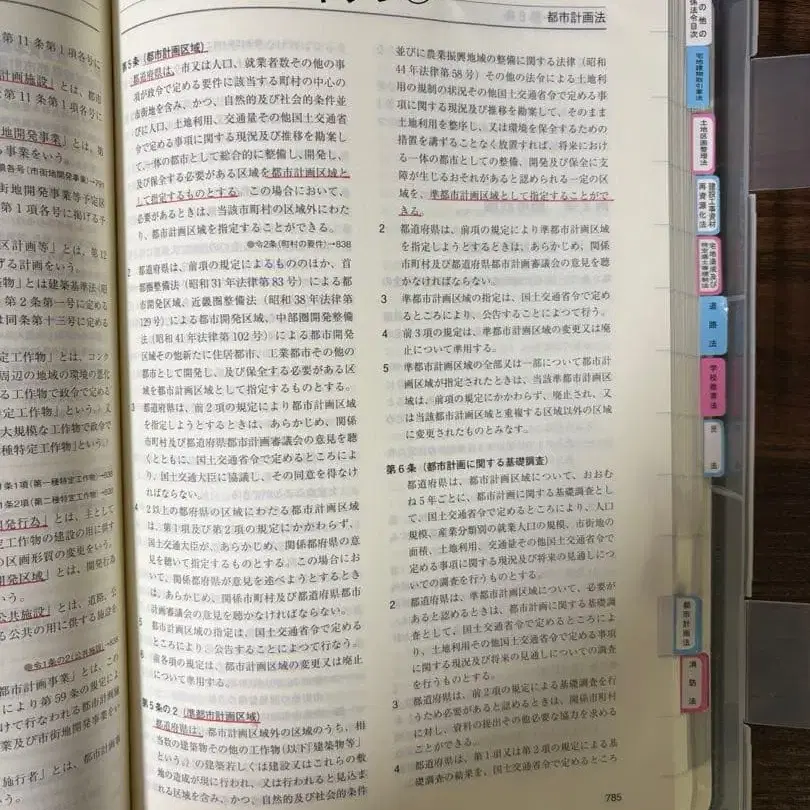 都市計画法
第11条第1項各号に
計画施設」とは、都市
第11条第1項各号に
地開発事業」とは、第
事業をいう。
条各号(市街地開発事業)→791
街地開発事業等予定区
第1項各号に掲げる予
区計画等」とは、第12
げる計画をいう。
築物」とは建築基準法(昭
第2条第一号に定める
は同条第十三号に定める
定工作物」とは、コンク
周辺の地域の環境の悪化
る工作物で政令で定める
特定工作物」という。)又
大規模な工作物で政令で
種特定工作物」という。)
1条1項(第一種特定工作物)→838
1条2項(第二種特定工作物)→838
開発行為」とは、主として
定工作物の建設の用に供す
の区画形質の変更をいう。
開発区域」とは、開発行為
公共施設」とは、道路、公
る公共の用に供する施設を
●令1条の2(公共施設)→838
都市計画事業」とは、この
より第59条の規定によ
けて行なわれる都市計画施
及び市街地開発事業をい
施行者」とは、都市計画事
第5条(都市計画区域)
都道府県は、市又は人口、就業者数その他の事
項が政令で定める要件に該当する町村の中心の
市街地を含み、かつ、自然的及び社会的条件並
びに人口、土地利用、交通量その他国土交通省
令で定める事項に関する現況及び推移を勘案し
て、一体の都市として総合的に整備し、開発し、
及び保全する必要がある区域を都市計画区域と
して指定するものとする。この場合において、
必要があるときは、当該市町村の区域外にわた
り、都市計画区域を指定することができる。
●令2条(町村の要件)→838
2 都道府県は、前項の規定によるもののほか、首
都圏整備法(昭和31年法律第83号)による都
市開発区域、近畿圏整備法(昭和38年法律第
129号)による都市開発区域、中部圏開発整備
法(昭和41年法律第102号)による都市開発
区域その他新たに住居都市、工業都市その他の
都市として開発し、及び保全する必要がある区
域を都市計画区域として指定するものとする。
3 都道府県は、前2項の規定により都市計画区域
を指定しようとするときは、あらかじめ、関係
市町村及び都道府県都市計画審議会の意見を聴
くとともに、国土交通省令で定めるところによ
り、国土交通大臣に協議し、その同意を得なけ
ればならない。
4 2以上の都府県の区域にわたる都市計画区域
は、第1項及び第2項の規定にかかわらず、
国土交通大臣が、あらかじめ、関係都府県の意
見を聴いて指定するものとする。この場合にお
いて、関係都府県が意見を述べようとするとき
は、あらかじめ、関係市町村及び都府県都市
計画審議会の意見を聴かなければならない。
5 都市計画区域の指定は、国土交通省令で定める
ところにより、公告することによつて行なう。
6 前各項の規定は、都市計画区域の変更又は廃止
について準用する。
第5条の2(準都市計画区域)
都道府県は、都市計画区域外の区域のうち、相
当数の建築物その他の工作物(以下「建築物等」
という。)の建築若しくは建設又はこれらの敷
地の造成が現に行われ、又は行われると見込ま
れる区域を含み、かつ、自然的及び社会的条件
並びに農業振興地域の整備に関する法律(昭和
44年法律第58号)その他の法令による土地利
用の規制の状況その他国土交通省令で定める事
項に関する現況及び推移を勘案して、そのまま
土地利用を整序し、又は環境を保全するための
措置を講ずることなく放置すれば、将来におけ
る一体の都市としての整備、開発及び保全に支
障が生じるおそれがあると認められる一定の区
域を、準都市計画区域として指定することがで
きる。
2 都道府県は、前項の規定により準都市計画区域
を指定しようとするときは、あらかじめ、関係
市町村及び都道府県都市計画審議会の意見を聴
かなければならない。
3 準都市計画区域の指定は、国土交通省令で定め
るところにより、公告することによつて行う。
4 前3項の規定は、準都市計画区域の変更又は廃
止について準用する。
5 準都市計画区域の全部又は一部について都市計
画区域が指定されたときは、当該準都市計画区
域は、前項の規定にかかわらず、廃止され、又
は当該都市計画区域と重複する区域以外の区域
に変更されたものとみなす。
第6条(都市計画に関する基礎調査)
都道府県は、都市計画区域について、おおむ
ね5年ごとに、都市計画に関する基礎調査とし
て、国土交通省令で定めるところにより、人口
規模、産業分類別の就業人口の規模、市街地の
面積、土地利用、交通量その他国土交通省令で
定める事項に関する現況及び将来の見通しにつ
いての調査を行うものとする。
2 都道府県は、準都市計画区域について、必要が
あると認めるときは、都市計画に関する基礎調
査として、国土交通省令で定めるところによ
り、土地利用その他国土交通省令で定める事項
に関する現況及び将来の見通しについての調査
を行うものとする。
3 都道府県は、前2項の規定による基礎調査を行
うため必要があると認めるときは、関係市町村
に対し、資料の提出その他必要な協力を求める
ことができる。
4 都道府県は、第1項又は第2項の規定による基
礎調査の結果を、国土交通省令で定めるところ
785
の他の
係法令目次
宅地建物取引業法
土地区画整理法
建設工事資材
再資源化法
宅地造成及び
特定盛土等規制法
道路法
学校教育法
民法
都市計画法
消防法